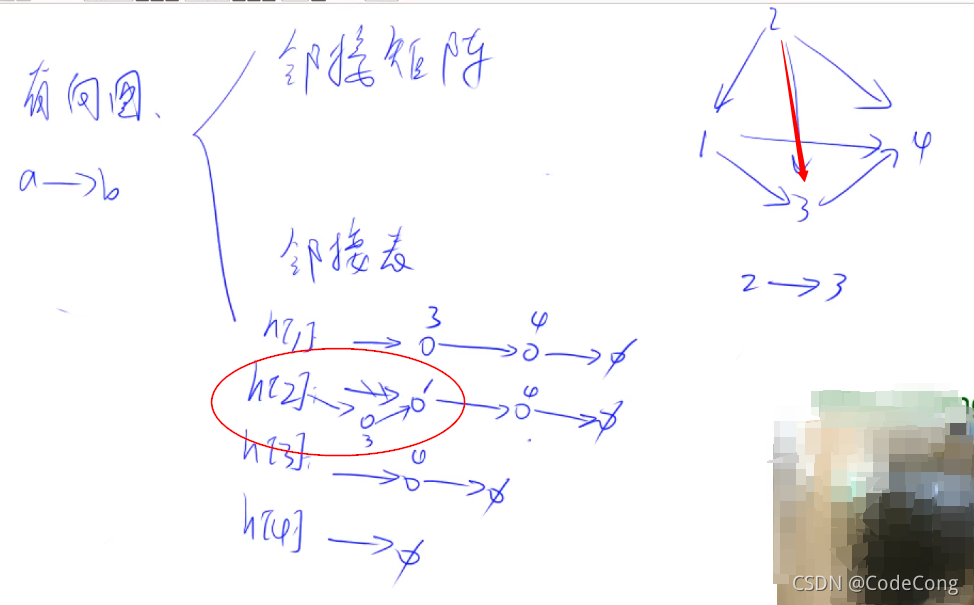 有向图、
a → b
邻接矩阵
邻接表
h[1] → 3 → 4 → ∅
h[2]: → 3 → 1 → 4 → ∅
h[3]: → 4 → ∅
h[4] → ∅
2
1
4
3
2 → 3
CSDN @CodeCong